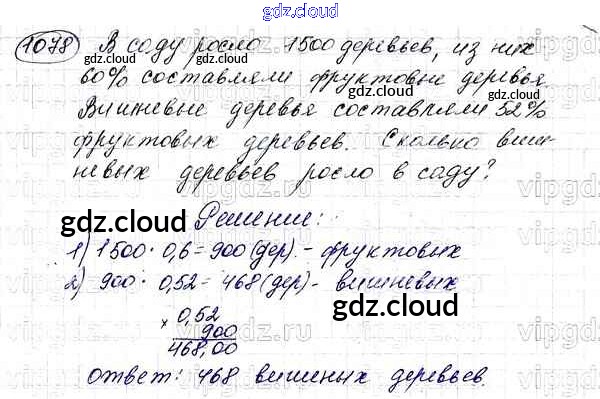 gdz.cloud
1078 В саду росло 1500 деревьев, из них
60% составляли фруктовые деревья.
Вишневые деревья составляли 52%
фруктовых деревьев. Сколько виш-
невых деревьев росло в саду?
gdz.cloud
Решение:
1) 1500 · 0,6 = 900 (дер) - фруктовых
2) 900 · 0,52 = 468 (дер) - вишневых
× 0,52
900
468,00
Ответ: 468 вишеных деревьев.